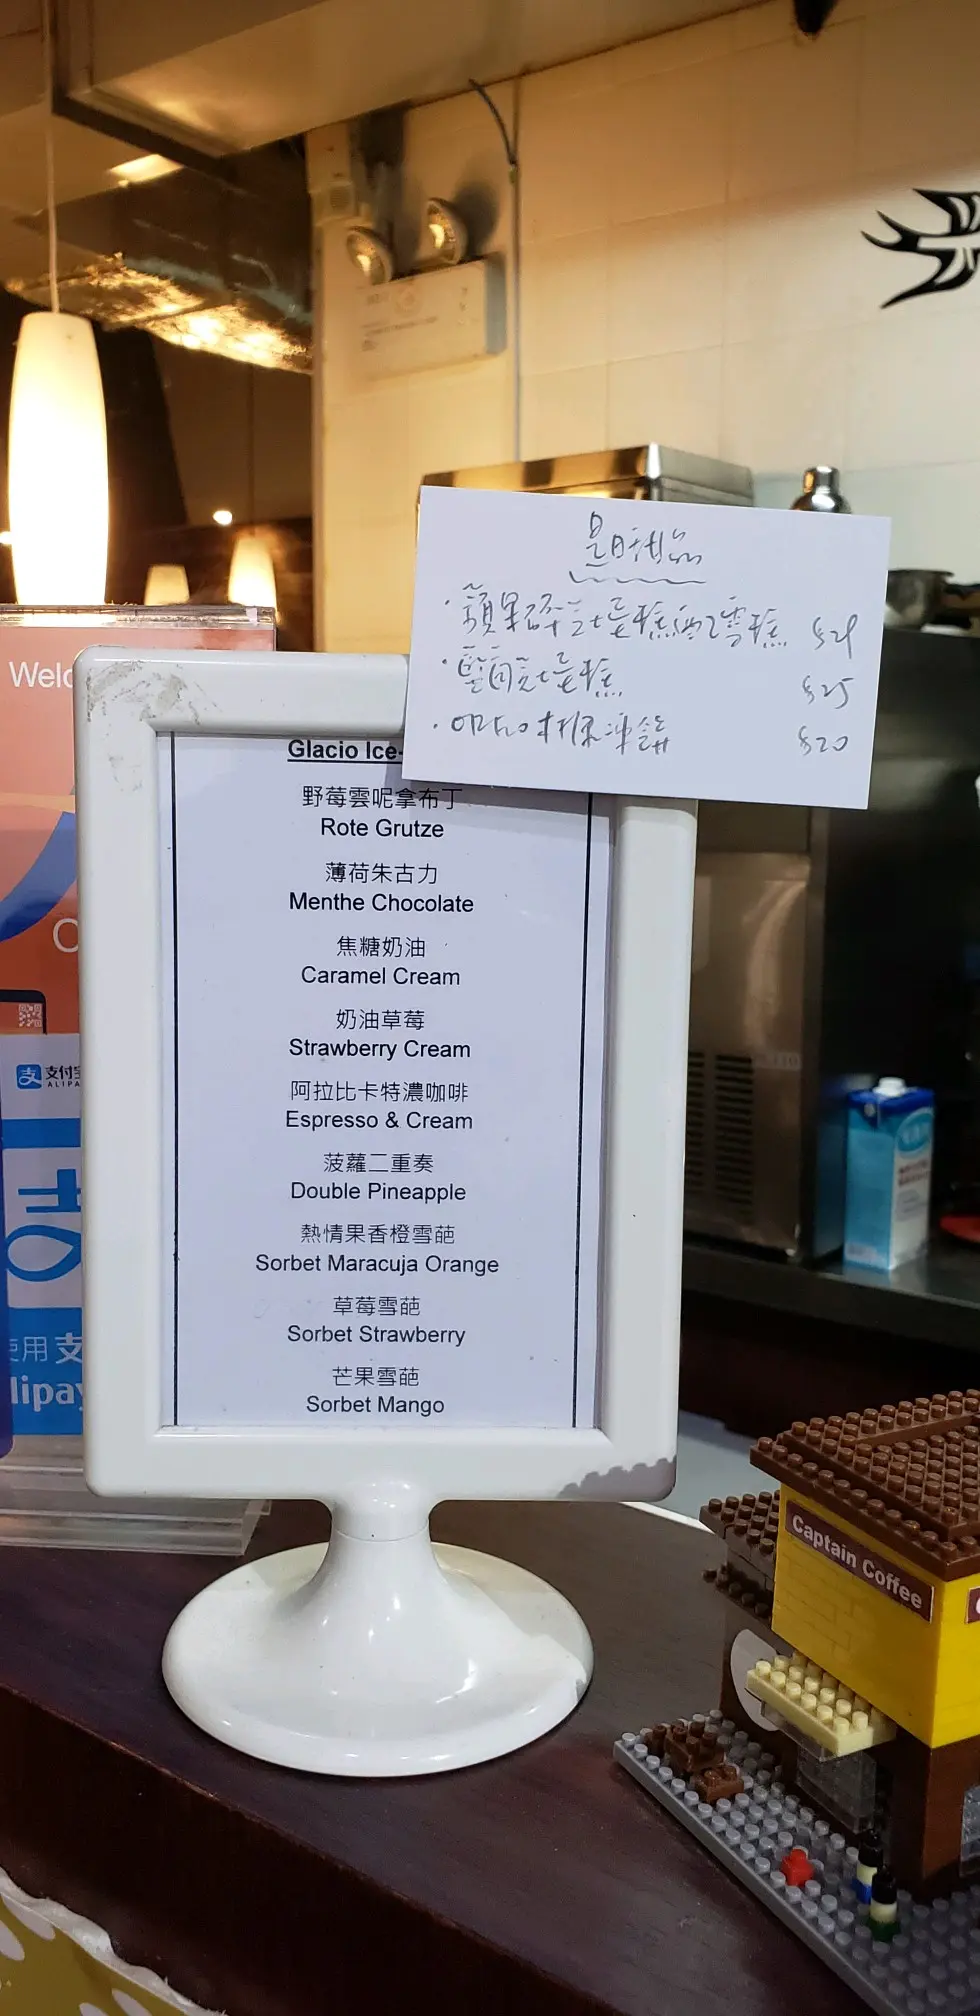 是日甜品
· 蘋果碎芝士蛋糕配雪糕 $29
· 藍莓芝士蛋糕 $25
· 呍呢 凍餅 $20
Glacio Ice-
野莓雲呢拿布丁
Rote Grutze
薄荷朱古力
Menthe Chocolate
焦糖奶油
Caramel Cream
奶油草莓
Strawberry Cream
阿拉比卡特濃咖啡
Espresso & Cream
菠蘿二重奏
Double Pineapple
熱情果香橙雪葩
Sorbet Maracuja Orange
草莓雪葩
Sorbet Strawberry
芒果雪葩
Sorbet Mango
Welc
支付宝
ALIPA
使用支
lipay
Captain Coffee